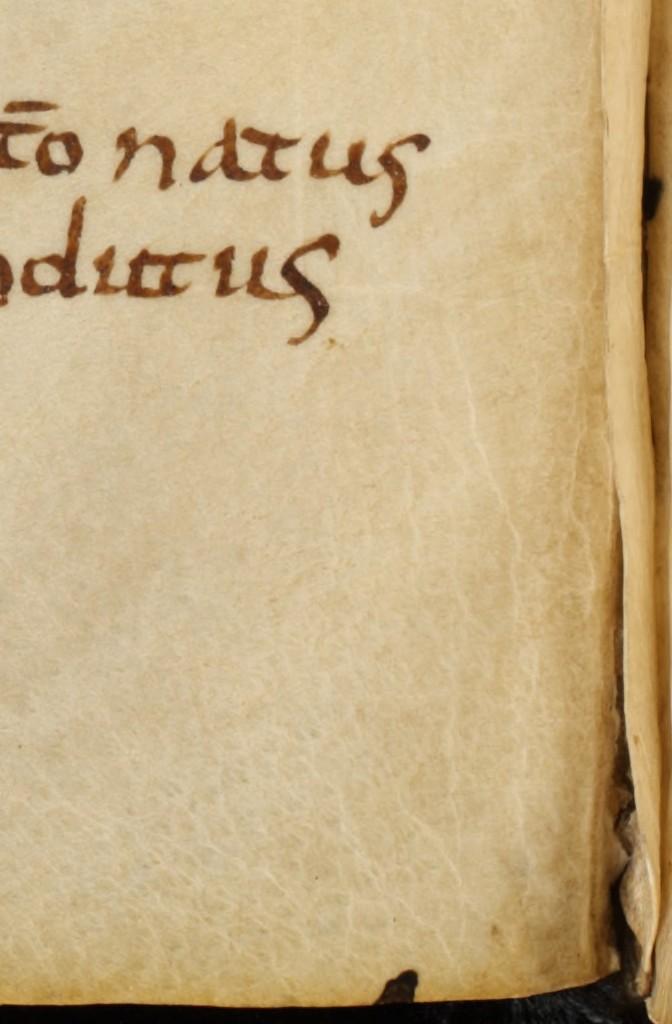 t̄o natus
ditus